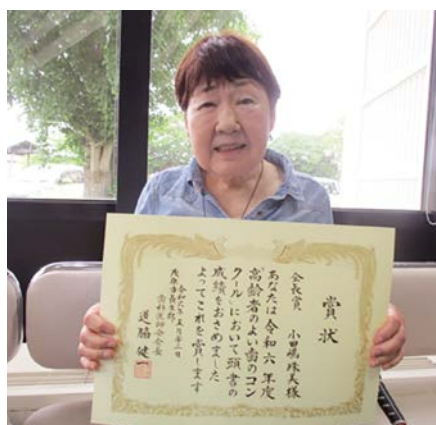 賞状
会長賞 小田嶋珠美様
あなたは令和六年度
高齢者のよい歯のコン
クールにおいて頭書の
成績をおさめました
よってこれを賞します
令和六年五月
茂原市長生郡
歯科医師会会長
道脇健一